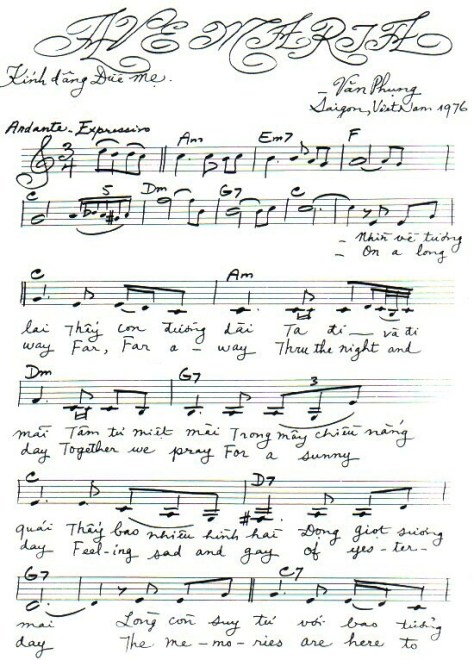 AVE MARIA
Kính dâng Đức mẹ.
- Văn Phụng
- Saigon, Việt Nam 1976
Andante - Expressivo
Am Em7 F
C 5 Dm G7 C
- Nhìn về tương
- On a long
C Am
lai Thấy con đường dài Ta đi — và đi
way Far, Far a - way Thru the night and
Dm G7 3
mãi Tâm tư miệt mài Trong mây chiều nắng
day Together we pray For a sunny
C D7
quái Thấy bao nhiêu hình hài Đọng giọt sương
day Feel-ing sad and gay of yes-ter-
G7 C7
mai Lòng còn suy tư với bao
day The me-mo-ries are here to